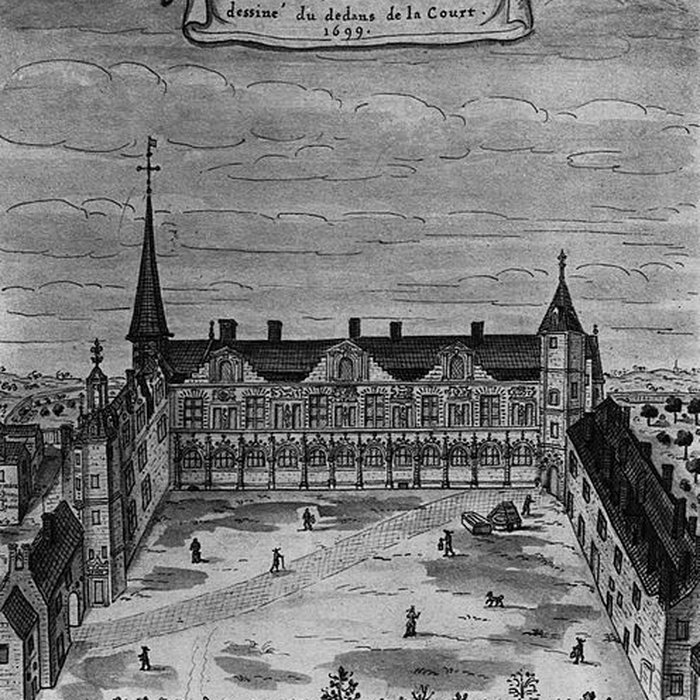 dessiné du dedans de la Court.
1699.